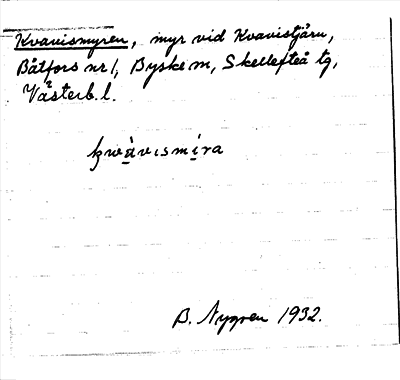 Kvavismyren, myr vid Kvavistjärn,
Båtfors nr 1, Byske sn, Skellefteå tg,
Västerb. l.
kwàvısmíra
B. Nygren 1932.